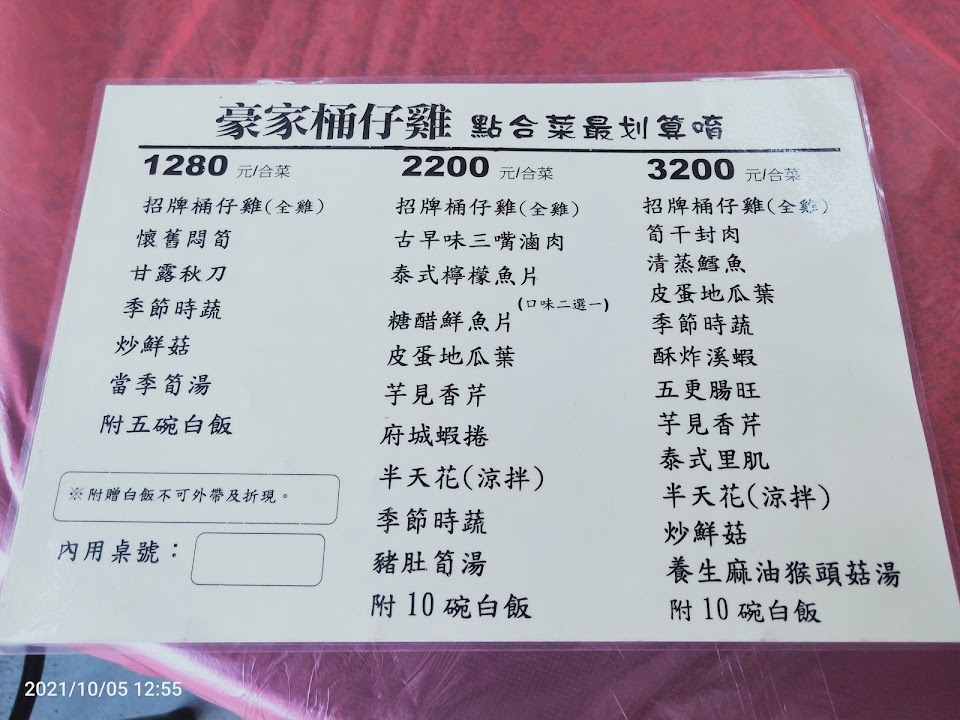 豪家桶仔雞 點合菜最划算唷
1280 元/合菜
招牌桶仔雞(全雞)
懷舊悶筍
甘露秋刀
季節時蔬
炒鮮菇
當季筍湯
附五碗白飯
※附贈白飯不可外帶及折現。
內用桌號：
2200 元/合菜
招牌桶仔雞(全雞)
古早味三嘴滷肉
泰式檸檬魚片
(口味二選一)
糖醋鮮魚片
皮蛋地瓜葉
芋見香芹
府城蝦捲
半天花(涼拌)
季節時蔬
豬肚筍湯
附 10 碗白飯
3200 元/合菜
招牌桶仔雞(全雞)
筍干封肉
清蒸鱈魚
皮蛋地瓜葉
季節時蔬
酥炸溪蝦
五更腸旺
芋見香芹
泰式里肌
半天花(涼拌)
炒鮮菇
養生麻油猴頭菇湯
附 10 碗白飯
2021/10/05 12:55